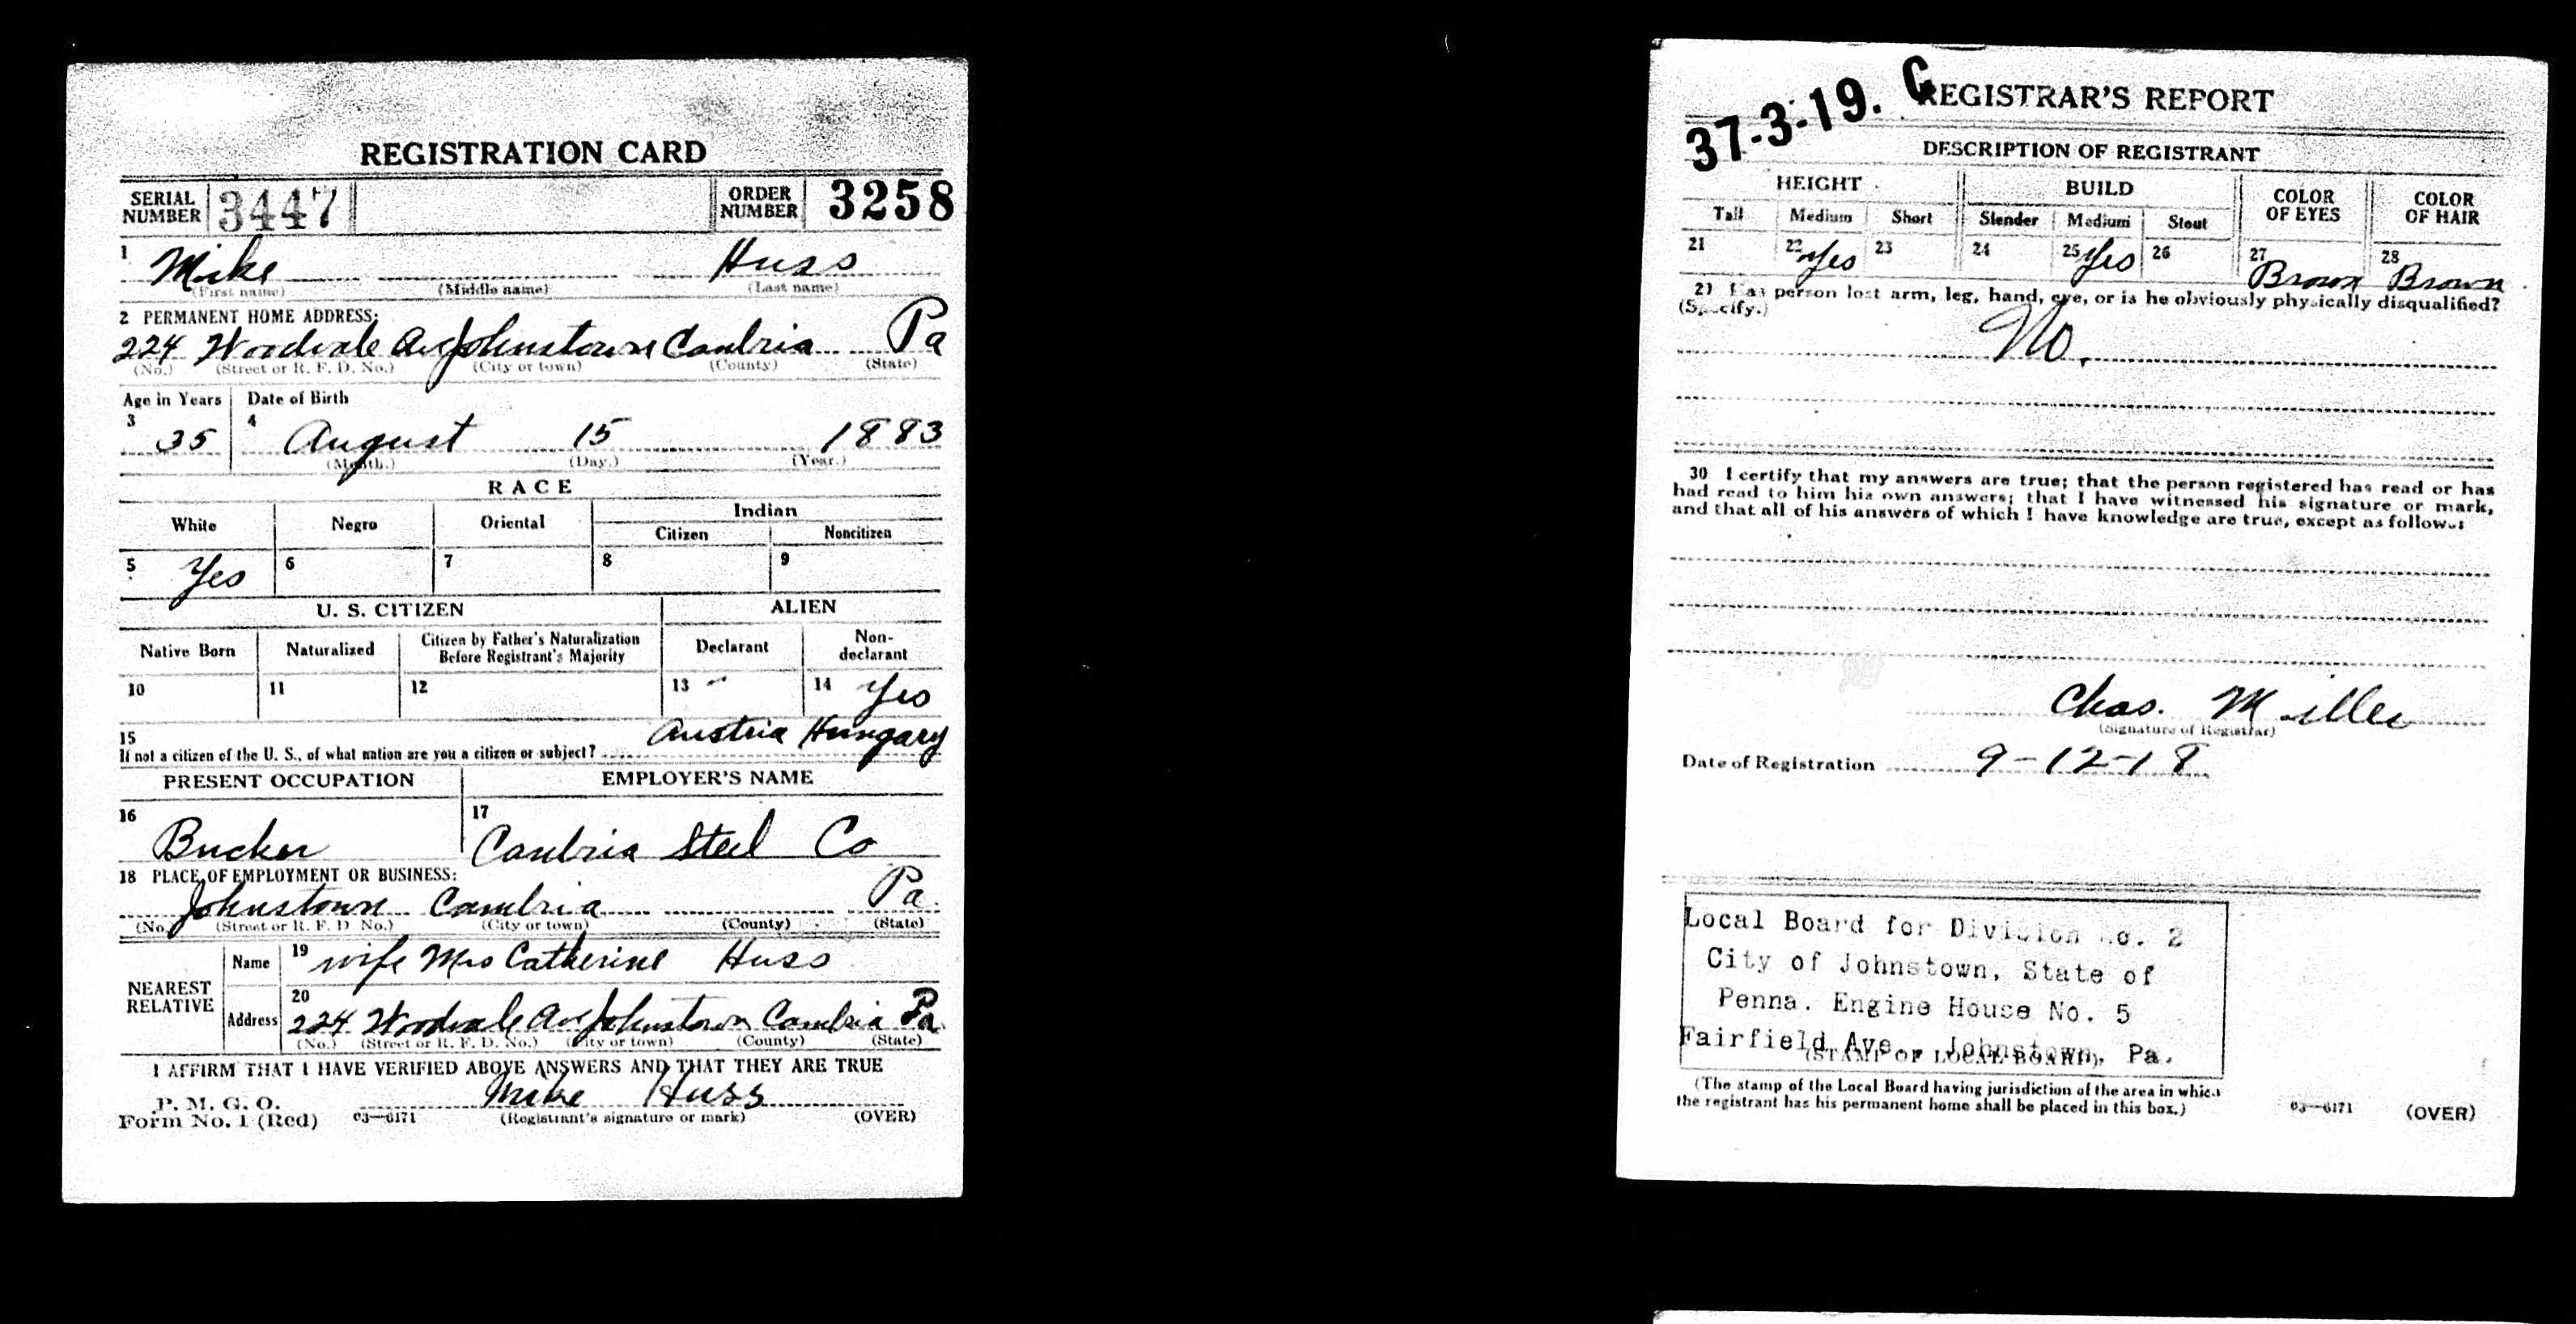 REGISTRATION CARD
SERIAL NUMBER 3447 ORDER NUMBER 3258
1 Mike Huss
(First name) (Middle name) (Last name)
2 PERMANENT HOME ADDRESS:
224 Woodvale Ave Johnstown Cambria Pa
(No.) (Street or R. F. D. No.) (City or town) (County) (State)
Age in Years Date of Birth
3 35 4 August 15 1883
(Month.) (Day.) (Year.)
RACE
White Negro Oriental Indian
Citizen Noncitizen
5 Yes 6 7 8 9
U. S. CITIZEN ALIEN
Native Born Naturalized Citizen by Father's Naturalization Before Registrant's Majority Declarant Non-declarant
10 11 12 13 14 Yes
15 Austria Hungary
If not a citizen of the U. S., of what nation are you a citizen or subject?
PRESENT OCCUPATION EMPLOYER'S NAME
16 Bucker 17 Cambria Steel Co
18 PLACE OF EMPLOYMENT OR BUSINESS:
Johnstown Cambria Pa.
(No.) (Street or R. F. D. No.) (City or town) (County) (State)
NEAREST RELATIVE
Name 19 wife Mrs Catherine Huss
Address 20 224 Woodvale Ave Johnstown Cambria Pa
(No.) (Street or R. F. D. No.) (City or town) (County) (State)
I AFFIRM THAT I HAVE VERIFIED ABOVE ANSWERS AND THAT THEY ARE TRUE
P. M. G. O. Mike Huss
Form No. 1 (Red) 03—6171 (Registrant's signature or mark) (OVER)
37-3-19. C REGISTRAR'S REPORT
DESCRIPTION OF REGISTRANT
HEIGHT BUILD COLOR OF EYES COLOR OF HAIR
Tall Medium Short Slender Medium Stout
21 22 Yes 23 24 25 Yes 26 27 Brown 28 Brown
29 Has person lost arm, leg, hand, eye, or is he obviously physically disqualified?
(Specify.) No.
30 I certify that my answers are true; that the person registered has read or has
had read to him his own answers; that I have witnessed his signature or mark,
and that all of his answers of which I have knowledge are true, except as follows:
Chas. Miller
(Signature of Registrar)
Date of Registration 9-12-18
Local Board for Division No. 2
City of Johnstown, State of
Penna. Engine House No. 5
Fairfield Ave., Johnstown, Pa.
(STAMP OF LOCAL BOARD)
(The stamp of the Local Board having jurisdiction of the area in which
the registrant has his permanent home shall be placed in this box.)
03—6171 (OVER)